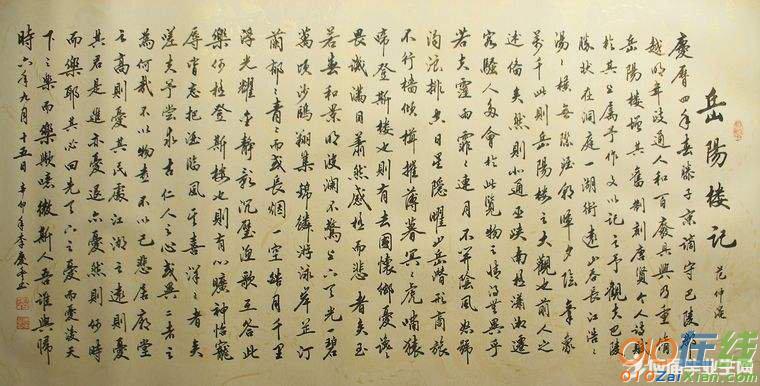 岳陽楼记
范仲淹
慶曆四年春滕子京谪守巴陵郡
越明年政通人和百廢具興乃重修
岳陽楼增其舊制刻唐賢今人诗赋
於其上属予作文以记之予觀夫巴陵
勝状在洞庭一湖衔遠山吞長江浩浩
湯湯横無際涯朝暉夕阴氣象
萬千此则岳陽楼之大觀也前人之
述備矣然则北通巫峡南极瀟湘遷
客騷人多會於此覧物之情得無異乎
若夫霪雨霏霏連月不開陰風怒號
濁浪排空日星隐曜山岳潜形商旅
不行樯傾楫摧薄暮冥冥虎嘯猿
啼登斯楼也则有去國懷鄉憂讒
畏譏滿目萧然感极而悲者矣至
若春和景明波瀾不驚上下天光一碧
萬頃沙鷗翔集錦鱗游泳岸芷汀
蘭郁郁青青而或長烟一空皓月千里
浮光耀金静影沉壁渔歌互答此
樂何极登斯楼也则有心曠神怡寵
辱皆忘把酒臨風其喜洋洋者矣
嗟夫予嘗求古仁人之心或異二者之
為何哉不以物喜不以己悲居廟堂
之高则憂其民處江湖之遠则憂
其君是進亦憂退亦憂然则何時
而樂耶其必曰先天下之憂而憂後天
下之樂而樂歟噫微斯人吾誰與歸
時六年九月十五日 辛卯年李慶书
在线
ZaiXian.com